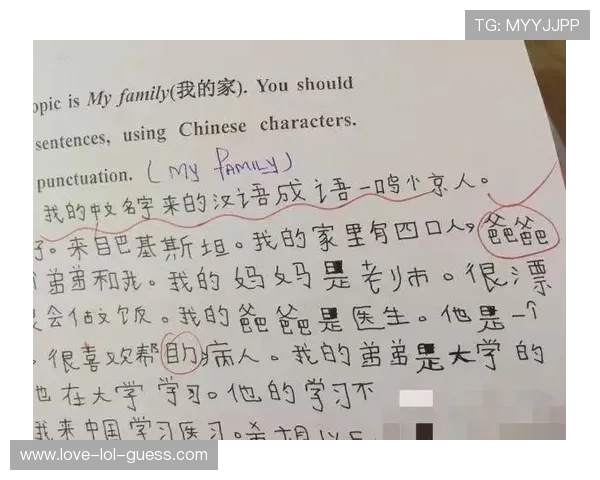 TG: MYYJJPP
opic is My family(我的家). You should
sentences, using Chinese characters.
punctuation. (MY FAMILY)
我的中文名字来的汉语成语一鸣个京人。
。来自巴基斯坦。我的家里有四口人,爸爸
弟弟和我。我的妈妈是老师。很漂
会做饭。我的爸爸是医生。他是一个
。很喜欢帮助病人。我的弟弟是大学的
也在大学学习。他的学习不
我来中国学习医习。
www.love-lol-guess.com